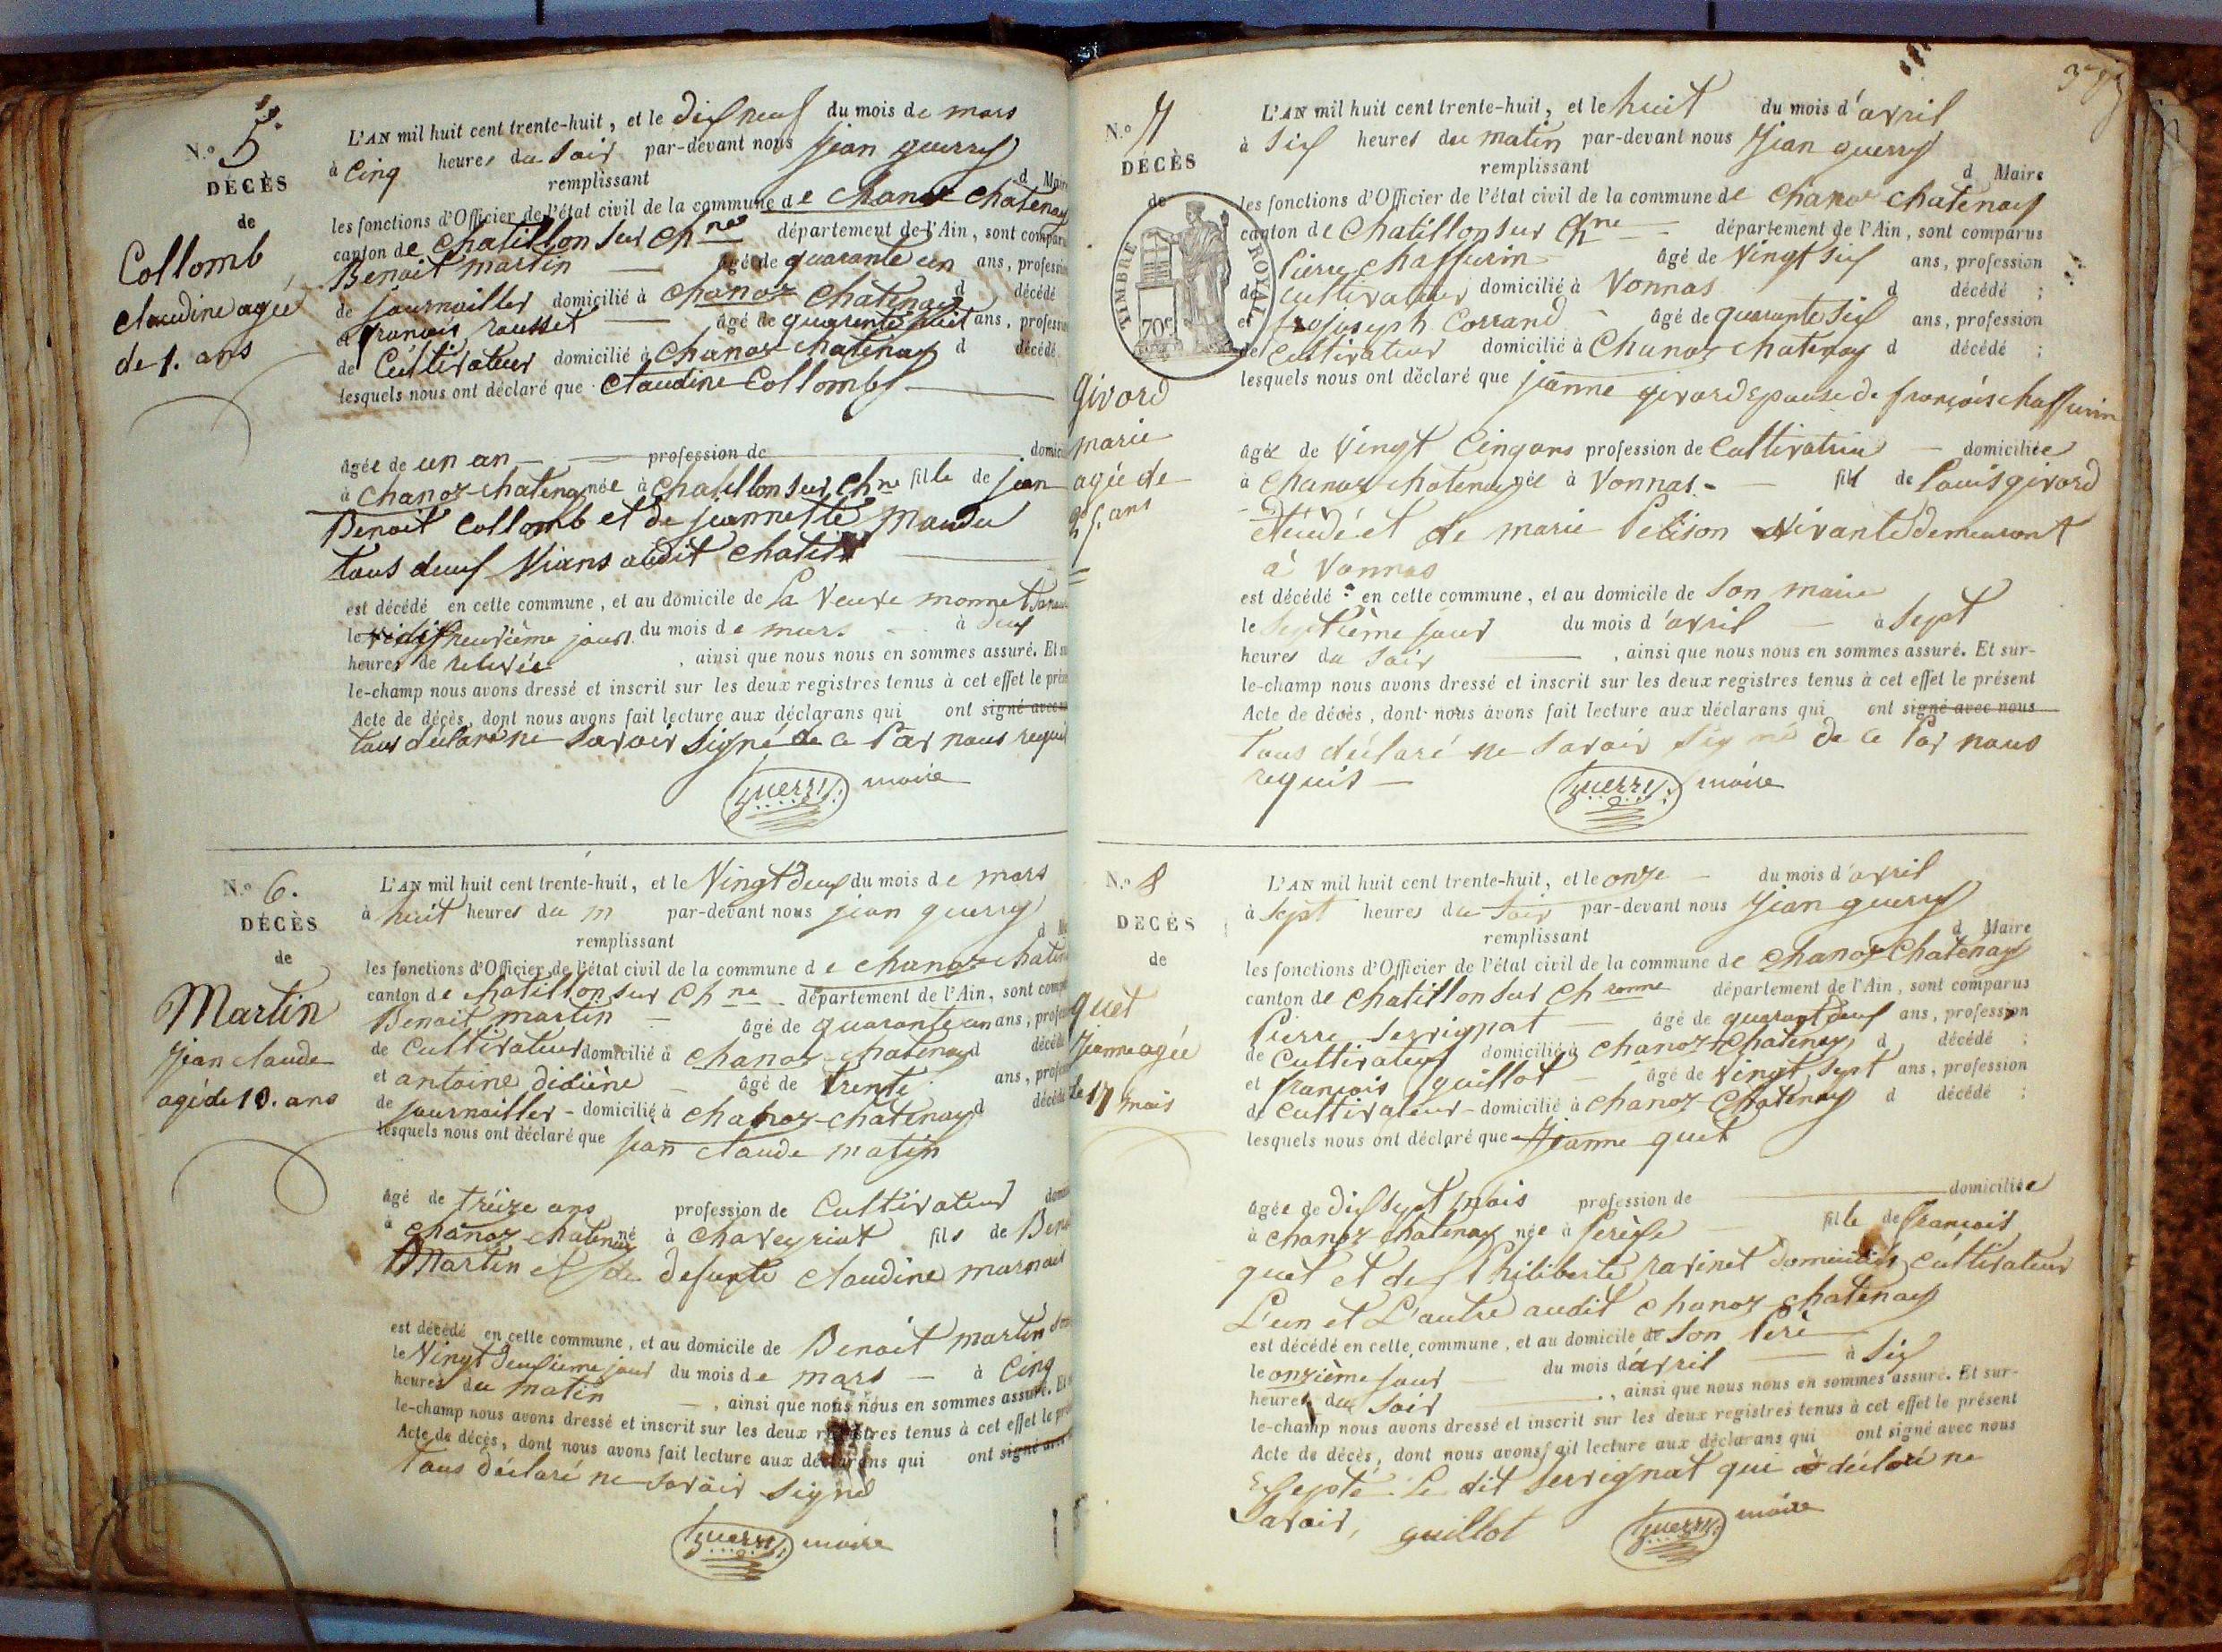 N.º 5.
DÉCÈS
de
Collomb
claudine agée
de 1. ans
L'AN mil huit cent trente-huit, et le dix neuf du mois de mars
à cinq heures du soir par-devant nous jean guerry
remplissant d Maire
les fonctions d'Officier de l'état civil de la commune de chanoz chatenay
canton de chatillon sur ch.ne département de l'Ain, sont comparus
Benoit martin âgé de quarante un ans, profession
de journailler domicilié à chanoz chatenay d décédé
et françois rousset âgé de quarente huit ans, profession
de Cultivateur domicilié à chanoz chatenay d décédé
lesquels nous ont déclaré que claudine Collomb
âgée de un an profession de domic
à chanoz-chatenay née à chatillon sur ch.ne fille de jean
Benoit Collomb et de jeannette mandu
tous deux vians audit chatill
est décédé en cette commune, et au domicile de la veuve monnet
le dixneuvième jour du mois de mars à deux
heures de relevée, ainsi que nous nous en sommes assuré. Et su
le-champ nous avons dressé et inscrit sur les deux registres tenus à cet effet le prés
Acte de décès, dont nous avons fait lecture aux déclarans qui ont signé avec n
tous déclaré ne savoir signé de ce par nous requi
guerry maire
N.º 6.
DÉCÈS
de
Martin
jean claude
agé de 13. ans
L'AN mil huit cent trente-huit, et le vingt deux du mois de mars
à huit heures du m par-devant nous jean guerry
remplissant d M
les fonctions d'Officier de l'état civil de la commune de chanoz chaten
canton de chatillon sur ch ne département de l'Ain, sont comp
Benoit martin âgé de quarante un ans, profess
de Cultivateur domicilié à chanoz-chatenay d décédé
et antoine didiène âgé de trente ans, profess
de journailler - domicilié à chanoz-chatenay d décédé
lesquels nous ont déclaré que jean claude matin
âgé de treize ans profession de Cultivateur domi
à chanoz-chatenay né à chaveyriat fils de Beno
Martin et de defunte claudine
est décédé en cette commune, et au domicile de Benoit martin
le vingt deuxieme jour du mois de mars à cinq
heures du matin, ainsi que nous nous en sommes assuré. Et
le-champ nous avons dressé et inscrit sur les deux registres tenus à cet effet le pré
Acte de décès, dont nous avons fait lecture aux déclarans qui ont signé avec
tous déclaré ne savoir signé
guerry maire
N.º 7
DÉCÈS
de
TIMBRE ROYAL
70c
Girard
marie
agée de
25. ans
L'AN mil huit cent trente-huit, et le huit du mois d'avril
à six heures du matin par-devant nous jean guerry
remplissant d Maire
les fonctions d'Officier de l'état civil de la commune de chanoz chatenay
canton de chatillon sur ch ne département de l'Ain, sont comparus
Pierre chaffurin âgé de vingt six ans, profession
de cultivateur domicilié à Vonnas d décédé ;
et joseph Corrand âgé de quarante six ans, profession
de cultivateur domicilié à Chanoz chatenay d décédé ;
lesquels nous ont déclaré que jeanne girard epouse de françois chaffurin
âgée de vingt cinq ans profession de Cultivatrice domiciliée
à chanoz chatenay née à Vonnas - fill de Louis girard
décédé et de marie Petijon vivante demeurant
à Vonnas
est décédé en cette commune, et au domicile de son marie
le septième jour du mois d'avril à sept
heures du soir, ainsi que nous nous en sommes assuré. Et sur-
le-champ nous avons dressé et inscrit sur les deux registres tenus à cet effet le présent
Acte de décès, dont nous avons fait lecture aux déclarans qui ont signé avec nous
tous déclaré ne savoir signé de ce par nous
requis
guerry maire
N.º 8
DÉCÈS
de
quet
jeanne agée
de 17 mois
L'AN mil huit cent trente-huit, et le onze du mois d'avril
à sept heures du soir par-devant nous jean guerry
remplissant d Maire
les fonctions d'Officier de l'état civil de la commune de chanoz chatenay
canton de chatillon sur ch ronne département de l'Ain, sont comparus
Pierre serrignat âgé de quarant deux ans, profession
de Cultivateur domicilié à chanoz-chatenay d décédé ;
et françois guillot âgé de vingt sept ans, profession
de Cultivateur - domicilié à chanoz chatenay d décédé ;
lesquels nous ont déclaré que jeanne quet
âgée de dix sept mois profession de domiciliée
à chanoz chatenay née à Perèse fille de françois
quet et de Philiberte ravinet domiciliés cultivateur
L'un et L'autre audit chanoz chatenay
est décédé en cette commune, et au domicile de son Père
le onzième jour du mois d'avril à six
heures du soir, ainsi que nous nous en sommes assuré. Et sur-
le-champ nous avons dressé et inscrit sur les deux registres tenus à cet effet le présent
Acte de décès, dont nous avons fait lecture aux déclarans qui ont signé avec nous
Excepté le dit serrignat qui a déclaré ne
savoir, guillot guerry maire